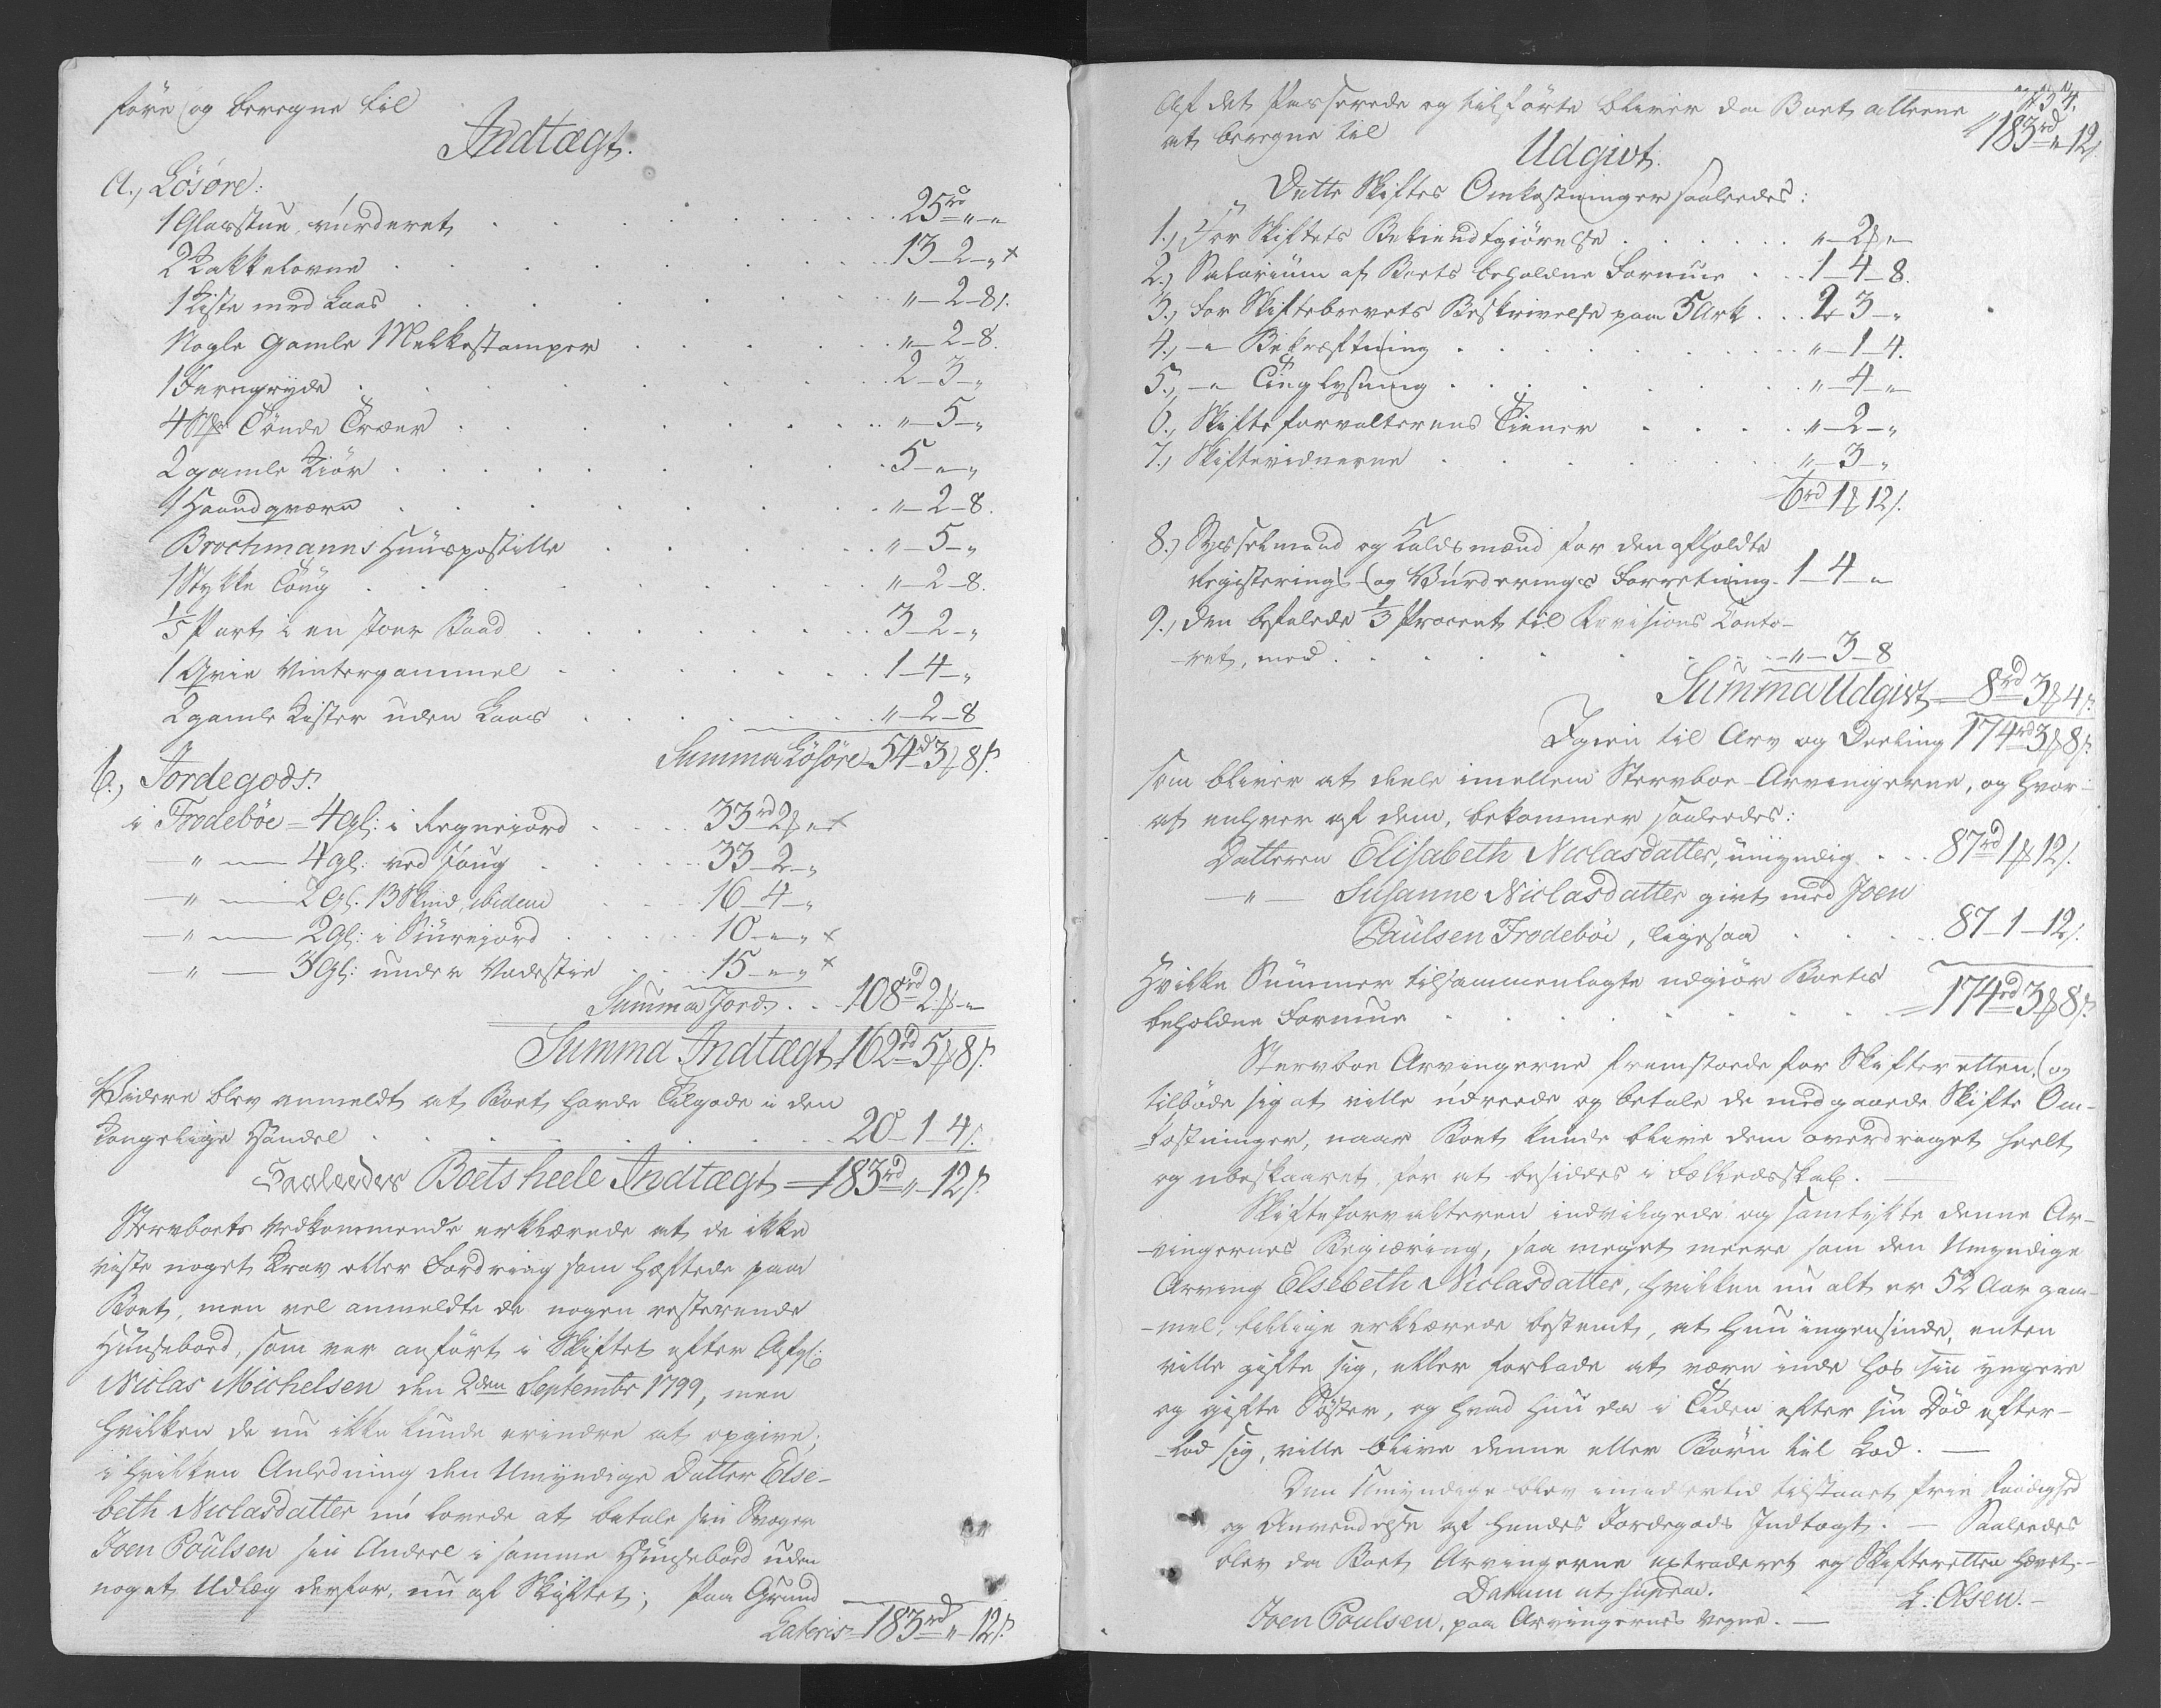 före og beregne til
Indtægt.
a., Lösöre:
1 Glasstue, vurderet . . . 25rd „ - „
2 Kakkelovne . . . 13 - 2 - „ +
1 Kiste med Laas . . . „ - 2 - 8 s.
Nogle gamle Melkestamper . . . „ - 2 - 8.
1 Jerngryde . . . 2 - 3 - „
4 Tönde Træer . . . „ - 5 - „
2 gamle Kiör . . . 5 - „ - „
1 Haandqværn . . . „ - 2 - 8.
Brochmanns Huuspostille . . . „ - 5 - „
1 Stykke Toug . . . „ - 2 - 8.
1/5 Part i en stoer Baad . . . 3 - 2 - „
1 Qvie Vintergammel . . . 1 - 4 - „
2 gamle Kister uden Laas . . . „ - 2 - 8
Summa Lösöre 54rd 3 ß 8 s.
b., Jordegods.
i Frodebøe = 4 gl: i Regnejord . . . 33rd 2 ß „ +
— „ — 4 gl: ved . . . 33 - 2 - „
— „ — 2 Gl. 13 Skind, ibidem . . . 16 - 4 - „
— „ — 2 gl: i . . . 10 - „ - „ +
— „ — 3 Gl: under . . . 15 - „ - „ +
Summa Jord. . . 108rd 2 ß - „
Summa Indtægt 162rd 5 ß 8 s.
Videre blev anmeldt at Boet havde Tilgode i den
Kongelige Handel . . . 20 - 1 - 4 s.
Saaledes Boets heele Indtægt = 183rd „ - 12 s.
Stervboets Vedkommende erklærede at de ikke
viste noget Krav eller Fordring som hæftede paa
Boet, men vel anmeldte de nogen resterende
, som var anfört i Skiftet efter Afg:
Niclas Michelsen den 2den Septembr 1799, men
hvilken de nu ikke kunde erindre at opgive;
i hvilken Anledning den Umyndige Datter Else-
beth Niclasdatter nu lovede at betale sin Svoger
Joen Poulsen sin Andeel i samme uden
noget Udlæg derfor, nu af Skiftet; paa Grund
Lateris 183rd „ - 12 s.
Af det Passerede og tilförte bliver da Boet alleene
at beregne til
183rd „ 12 s.
Udgivt.
„ Dette Skiftes Omkostninger saaledes:
1., For Skiftets Bekiendtgiörelse . . . „ - 2 ß „
2., Salarium af Boets beholdne Formue . . . 1 - 4 - 8.
3., For Skiftebrevets Beskrivelse paa 5 Ark . . . 2 - 3 - „
4., — „ Bekræftning . . . „ - 1 - 4.
5., — „ Tinglysning . . . „ - 4 - „
6., Skifteforvalterens Tiener . . . „ - 2 - „
7., Skiftevidnerne . . . „ - 3 - „
6rd 1 ß 12 s.
8., Sysselmand og Kaldsmænd for den afholdte
Registerings og Vurderings Forretning . 1 - 4 - „
9., den befalede 1/3 Procent til Revisions Conto-
-ret, med . . . „ - 3 - 8
Summa Udgivt = 8rd 3 ß 4 s.
Igien til Arv og Deeling 174rd 3 ß 8 s.
som bliver at deele imellem Stervboe Arvingerne, og hvor-
af enhver af dem, bekommer saaledes:
Datteren Elisabeth Niclasdatter, umyndig . . . 87rd 1 ß 12 s.
— „ — Susanne Niclasdatter givt med Joen
Paulsen Frodebøe, ligesaa . . . 87 - 1 - 12 s.
Hvilke Summer tilsammenlagte udgiör Boets
beholdne Formue . . . = 174rd 3 ß 8 s.
Stervboe Arvingerne fremstoede for Skifteretten, og
tilböde sig at ville udreede og betale de medgaaede Skifte Om-
-kostninger, naar Boet kunde blive dem overdraget heelt
og ubeskaaret, for at besiddes i Fælledsskab. —
Skifteforvalteren indvilgede og samtykte denne Ar-
-vingernes Begiæring, saa meget meere som den Umyndige
Arving Elsebeth Niclasdatter, hvilken nu alt er 52 Aar gam-
-mel, tillige erklærede bestemt, at hun ingensinde, enten
ville gifte sig, eller forlade at være inde hos sin yngere
og gifte Söster, og hvad hun da i Tiden efter sin Död efter-
-lod sig, ville blive denne eller Börn til Lod. —
Den Umyndige blev imidlertid tilstaaet frie Raadighed
og Anvendelse af hendes Jordegods Indtægt. — Saaledes
blev da Boet Arvingerne extraderet og Skifteretten hævet. —
Datum ut supra.
L. Olsen. —
Joen Poulsen, paa Arvingernes Vegne. —